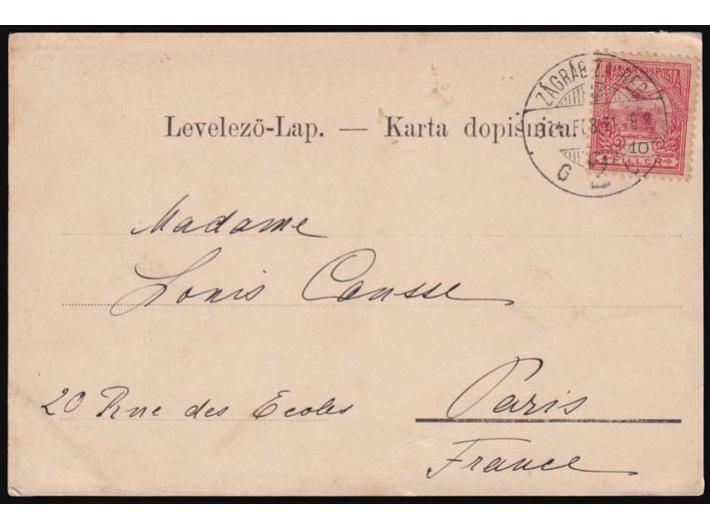 Levelező-Lap. — Karta dopisnica.
ZÁGRÁB ZAGREB
10
FILLER
Madame
Louis Cousse
20 Rue des Ecoles
Paris
France